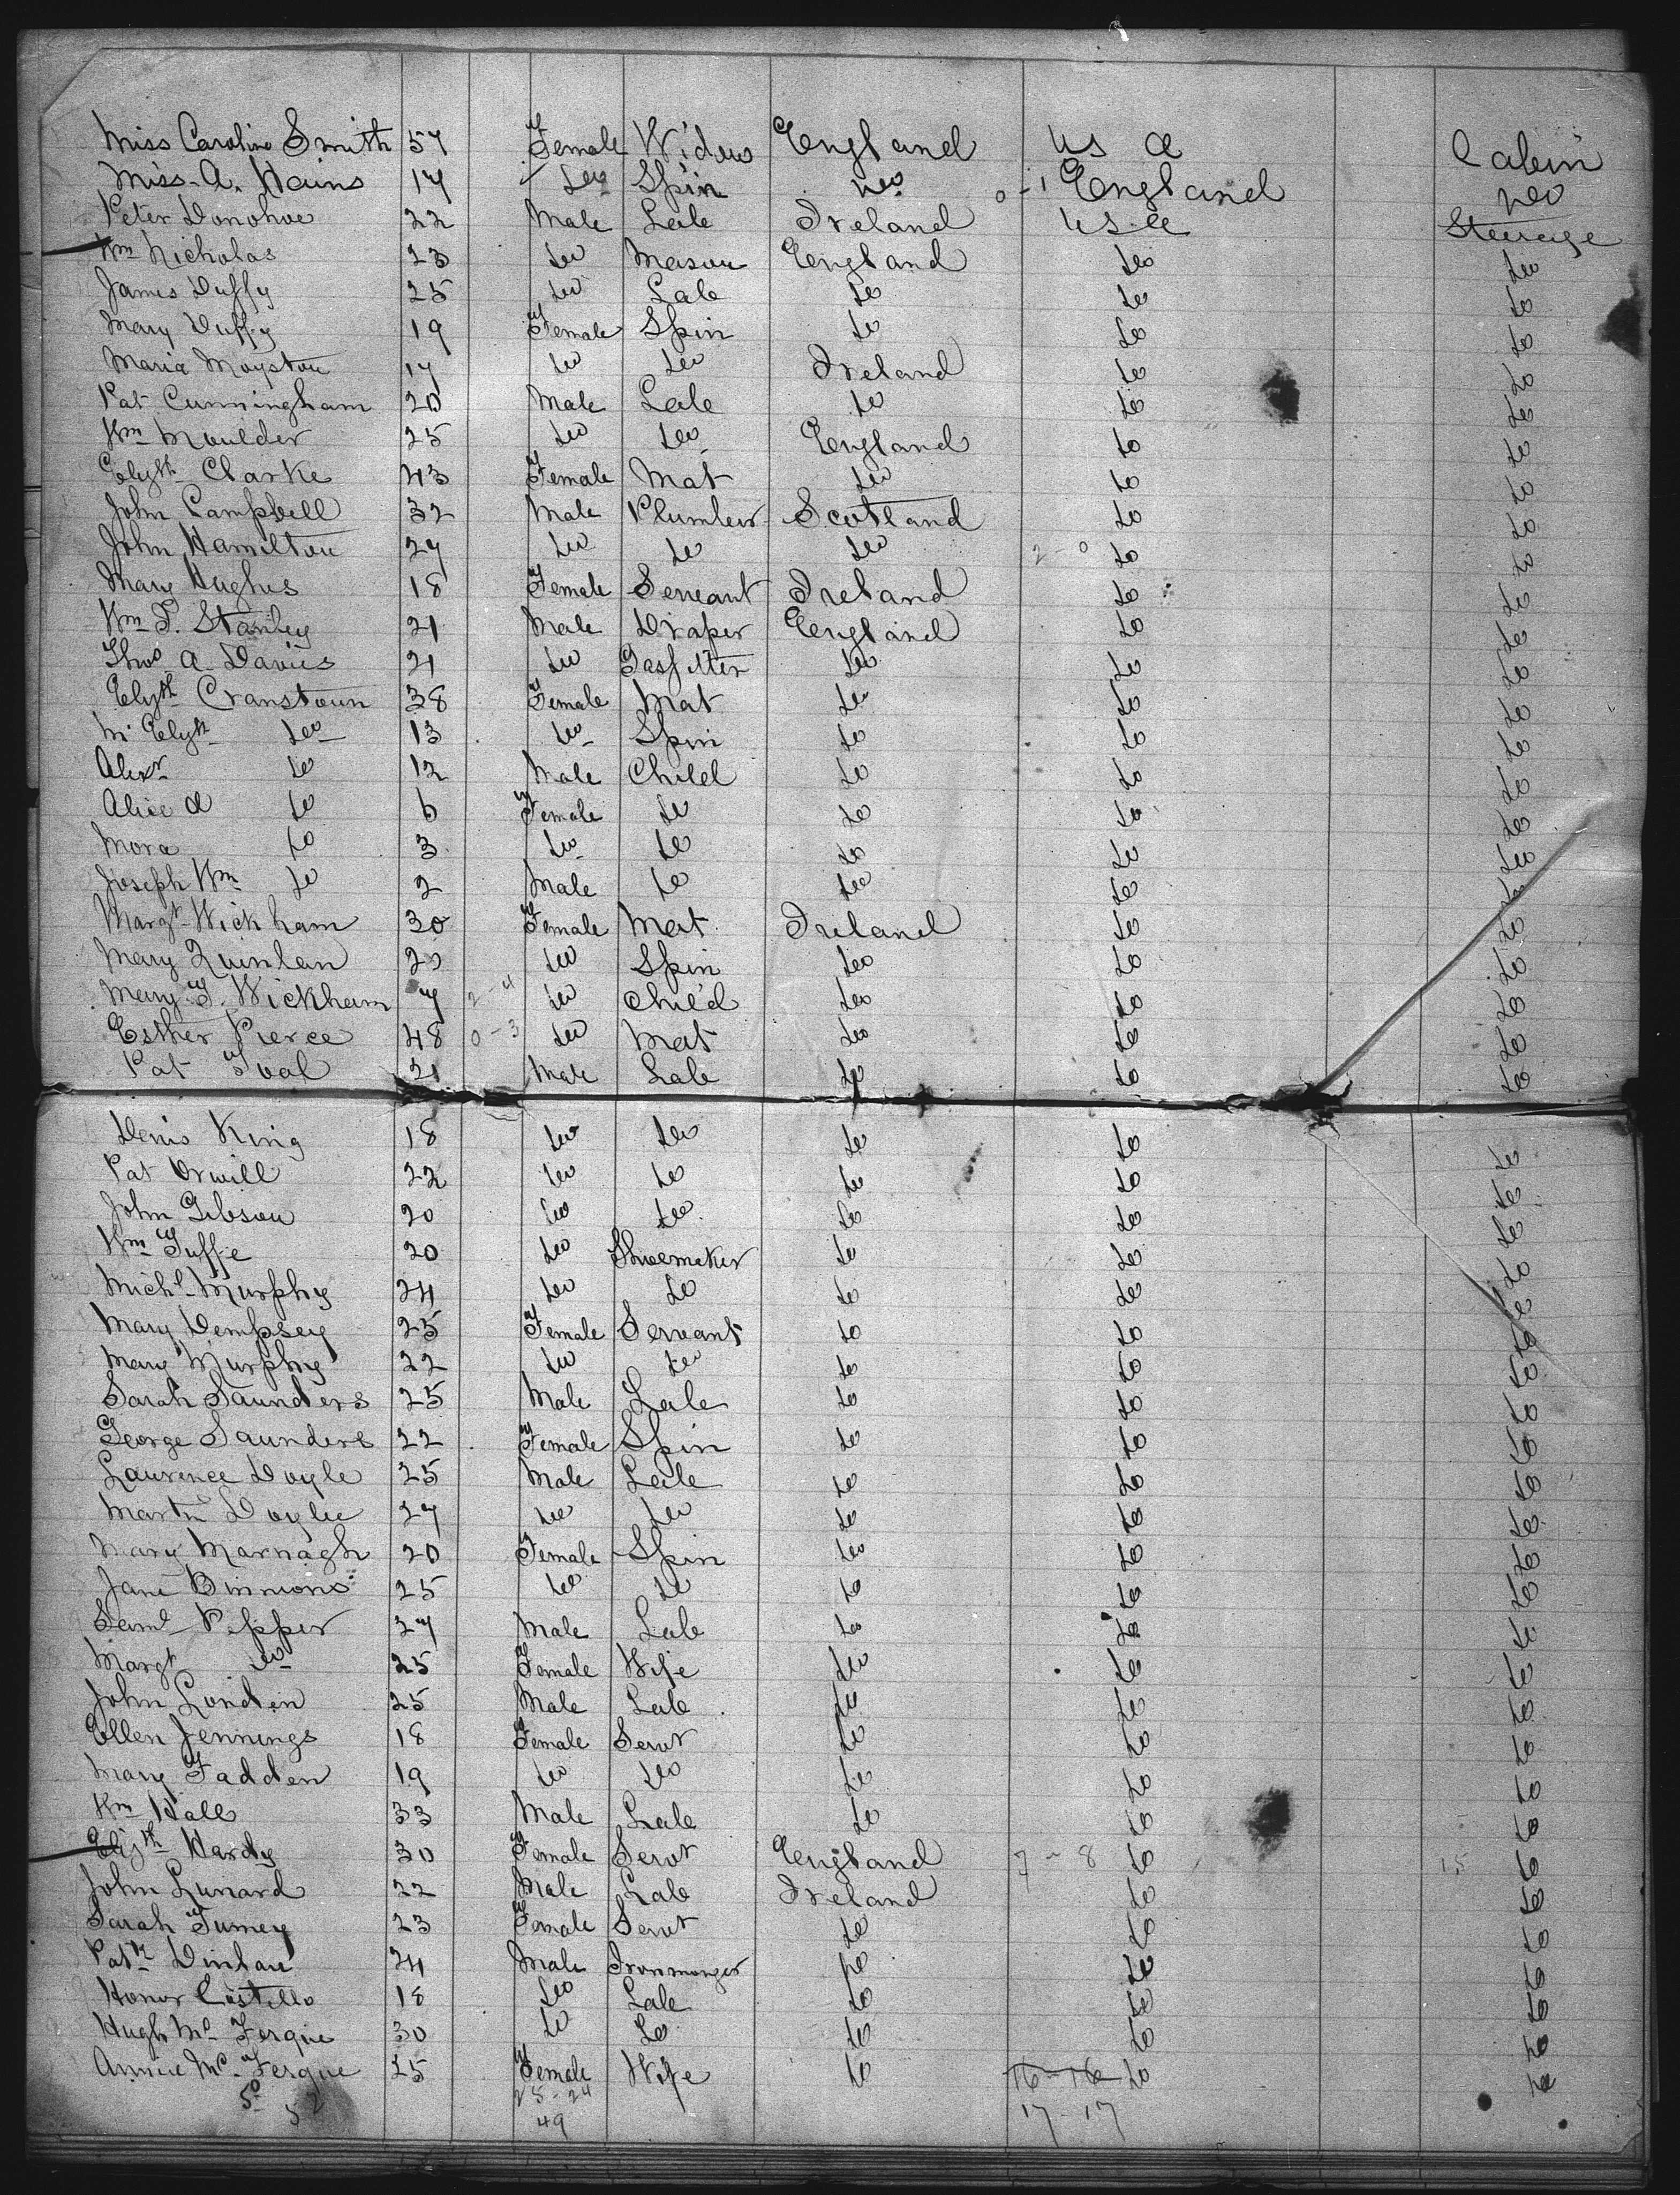 Miss Caroline Smith 57 Female Widow England US a Cabin
Miss A. Hains 17 Do Spin Do 0-1 England Do
Peter Donohoe 22 Male Lab Ireland US a Steerage
Wm Nicholas 23 Do Mason England Do Do
James Duffy 25 Do Lab Do Do Do
Mary Duffy 19 Female Spin Do Do Do
Maria Moyston 17 Do Do Ireland Do Do
Pat Cunningham 20 Male Lab Do Do Do
Wm Moulder 25 Do Do England Do Do
Elizth Clarke 43 Female Mat Do Do Do
John Campbell 32 Male Plumber Scotland Do Do
John Hamilton 27 Do Do Do 2-0 Do Do
Mary Hughes 18 Female Servant Ireland Do Do
Wm S. Stanley 21 Male Draper England Do Do
Thos A. Davies 21 Do Gasfitter Do Do Do
Elizth Cranstoun 38 Female Mat Do Do Do
M Elizth Do 13 Do Spin Do Do Do
Alexr Do 12 Male Child Do Do Do
Alice A Do 6 Female Do Do Do Do
Mora Do 3 Do Do Do Do Do
Joseph Wm Do 2 Male Do Do Do Do
Margt Wickham 30 Female Mat Ireland Do Do
Mary Quinlan 20 Do Spin Do Do Do
Mary F. Wickham 7 2-4 Do Child Do Do Do
Esther Pierce 48 0-3 Do Mat Do Do Do
Pat Foal 21 Male Lab Do Do Do
Denis King 18 Do Do Do Do Do
Pat Orwill 22 Do Do Do Do Do
John Gibson 20 Do Do Do Do Do
Wm Tuffe 20 Do Shoemaker Do Do Do
Michl Murphy 24 Do Do Do Do Do
Mary Dempsey 25 Female Servant Do Do Do
Mary Murphy 22 Do Do Do Do Do
Sarah Saunders 25 Male Lab Do Do Do
George Saunders 22 Female Spin Do Do Do
Laurence Doyle 25 Male Lab Do Do Do
Martin Doyle 27 Do Do Do Do Do
Mary Marnagh 20 Female Spin Do Do Do
Jane Binmons 25 Do Do Do Do Do
Saml Pepper 27 Male Lab Do Do Do
Margt Do 25 Female Wife Do Do Do
John Londin 25 Male Lab Do Do Do
Ellen Jennings 18 Female Servt Do Do Do
Mary Fadden 19 Do Do Do Do Do
Wm Hall 33 Male Lab Do Do Do
Elizth Hardy 30 Female Servt England 7-8 Do 15 Do
John Lunard 22 Male Lab Ireland Do Do
Sarah Tumey 23 Female Servt Do Do Do
Patk Dinlan 24 Male Ironmonger Do Do Do
Honor Costello 18 Do Lab Do Do Do
Hugh Mc Fergue 30 Do Do Do Do Do
Annie Mc Fergue 25 Female Wife Do 16-16 Do Do
50 52 25-24 17-17
49